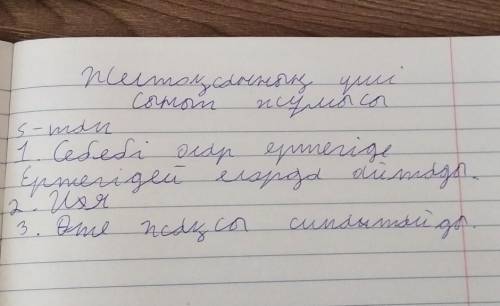 Желтоқсанның үші
Сынып жұмысы
5-тап
1. Себебі олар ертегіде
Ертегідей еларда айтады.
2. Иэя
3. Өте жақсы сипатайды.